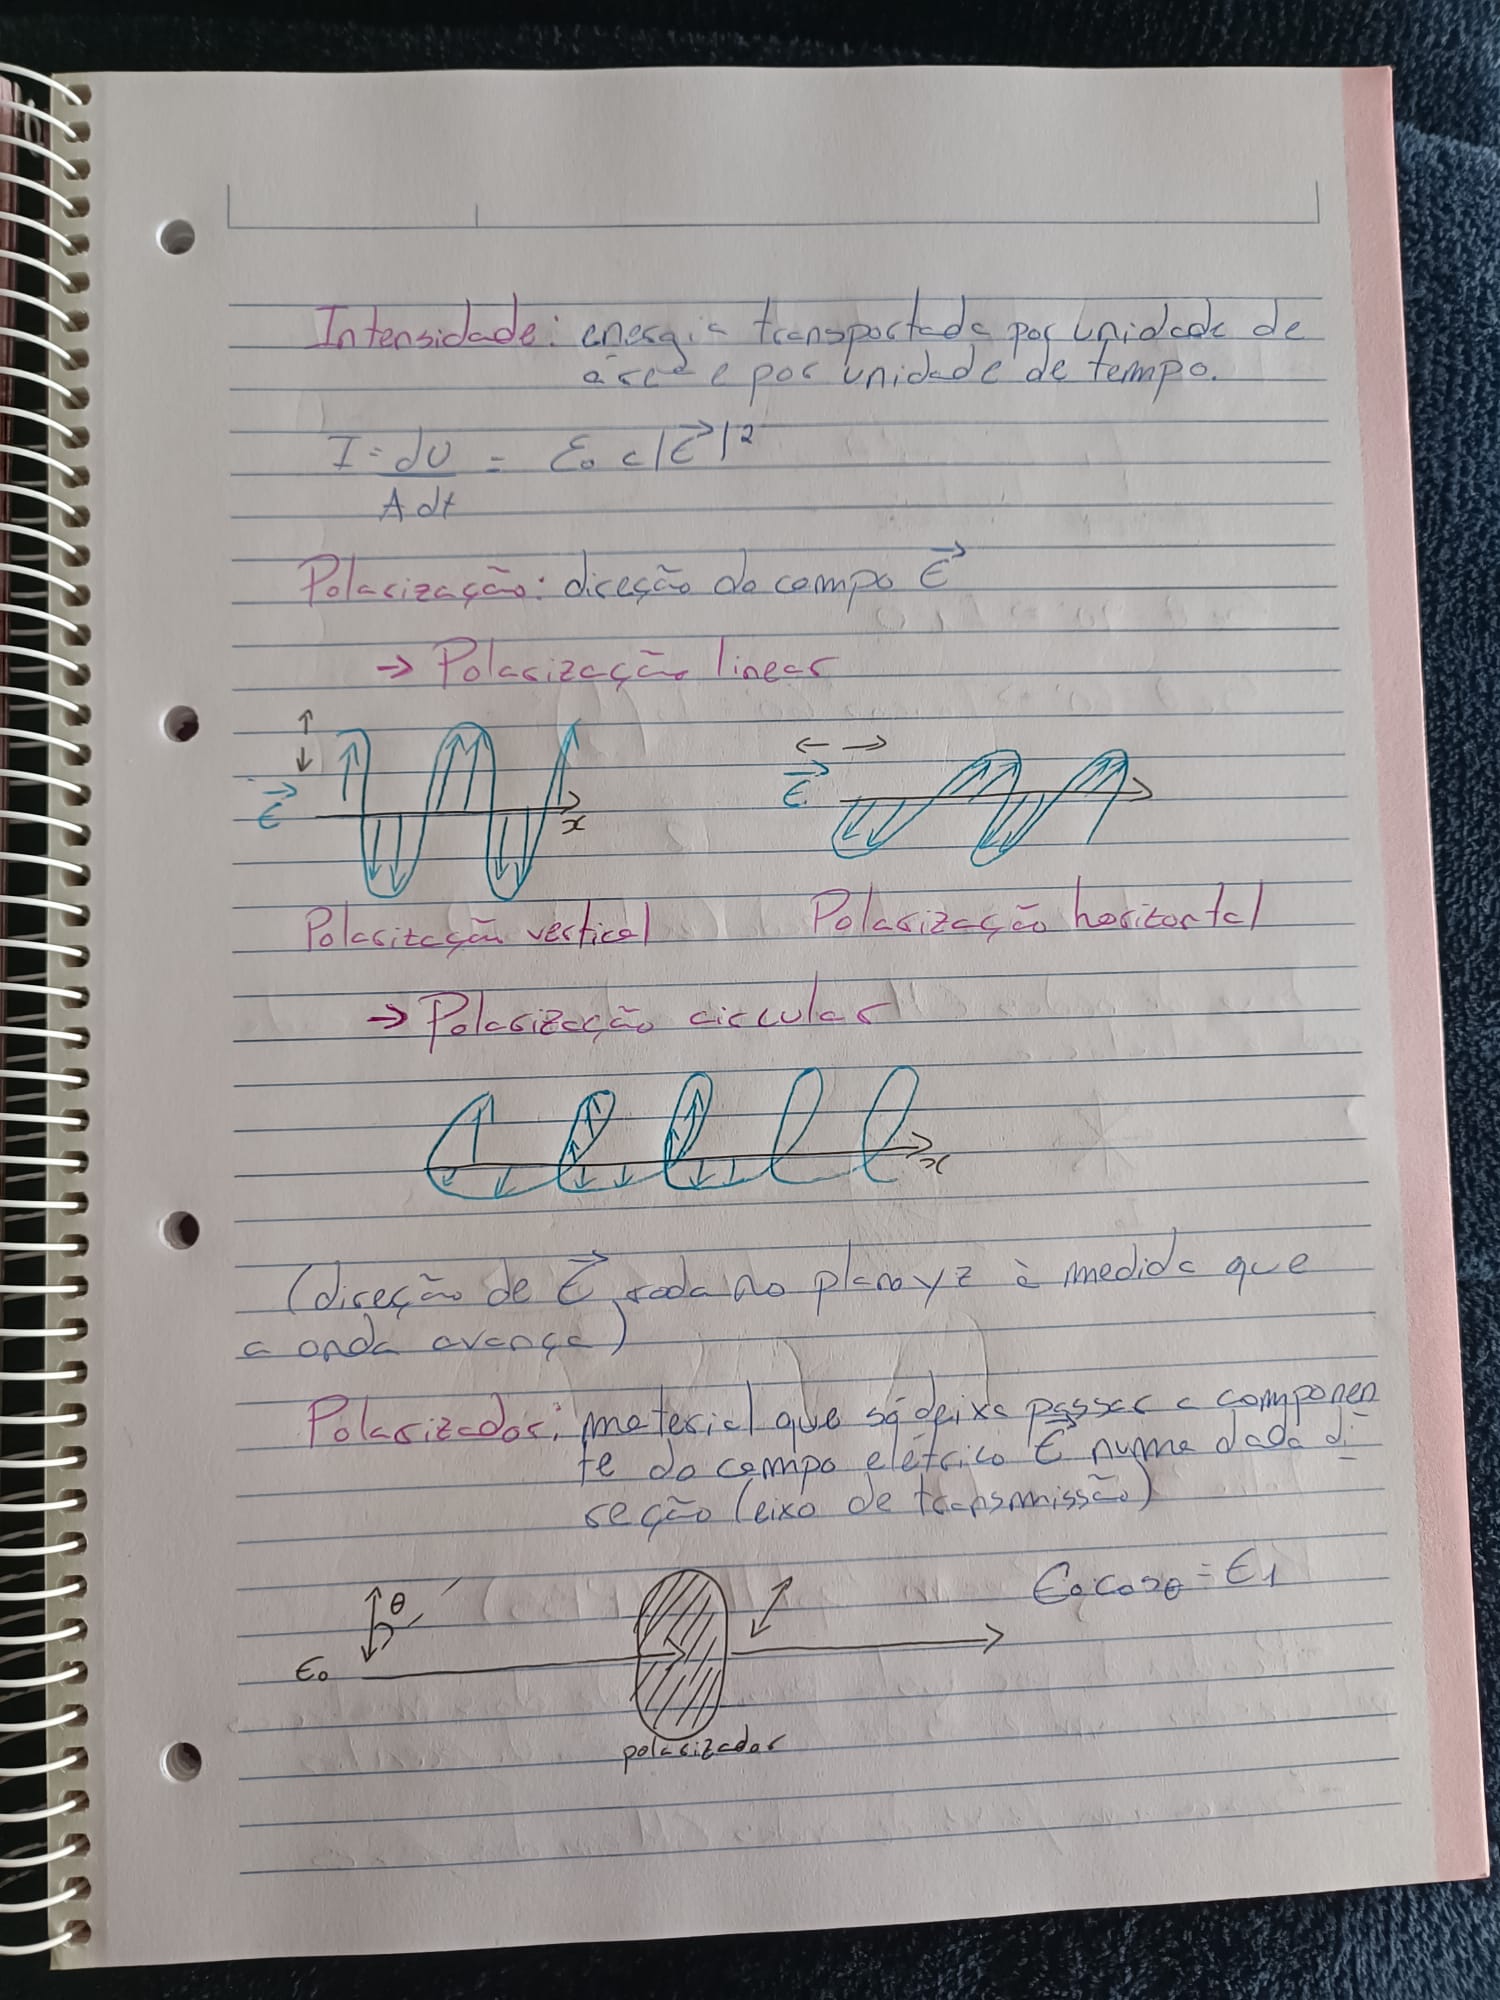 Intensidade: energia transportada por unidade de
área e por unidade de tempo.
I = dU / A dt = ε₀ c |E⃗|²
Polarização: direção do campo E⃗
→ Polarização linear
E⃗ x E⃗
Polarização vertical Polarização horizontal
→ Polarização circular
x
(direção de E⃗ roda no plano yz à medida que
a onda avança)
Polarizador: material que só deixa passar a componen
te do campo elétrico E⃗ numa dada di
reção (eixo de transmissão)
θ E₀cosθ = E₁
E₀
polarizador